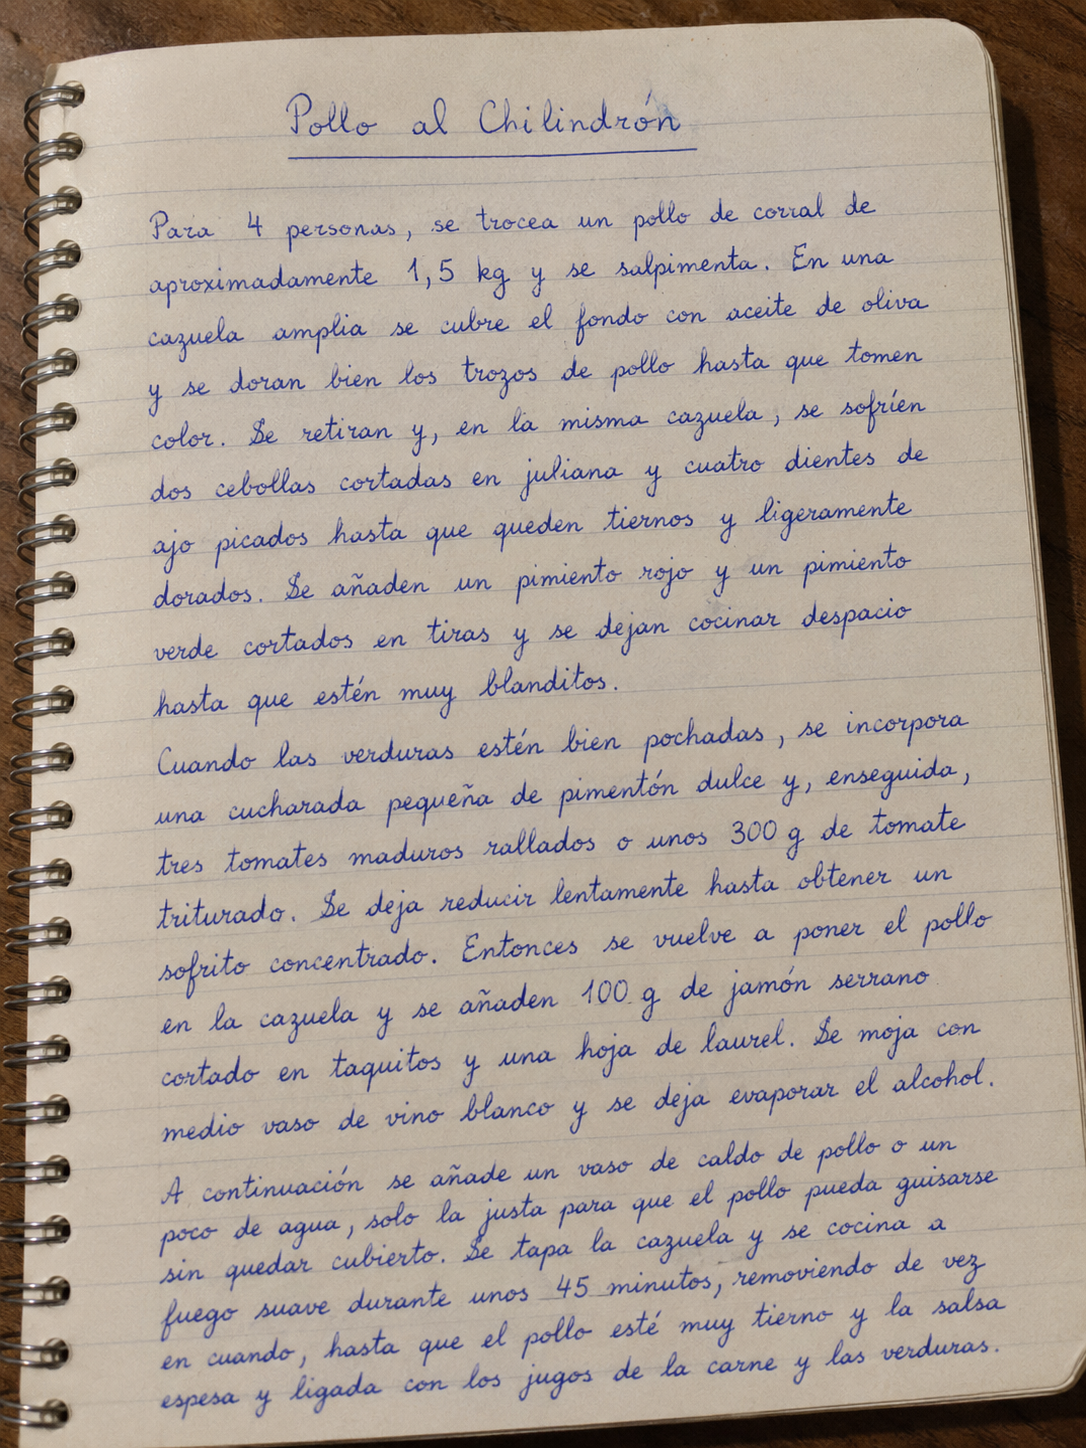 Pollo al Chilindrón
Para 4 personas, se trocea un pollo de corral de
aproximadamente 1,5 kg y se salpimenta. En una
cazuela amplia se cubre el fondo con aceite de oliva
y se doran bien los trozos de pollo hasta que tomen
color. Se retiran y, en la misma cazuela, se sofríen
dos cebollas cortadas en juliana y cuatro dientes de
ajo picados hasta que queden tiernos y ligeramente
dorados. Se añaden un pimiento rojo y un pimiento
verde cortados en tiras y se dejan cocinar despacio
hasta que estén muy blanditos.
Cuando las verduras estén bien pochadas, se incorpora
una cucharada pequeña de pimentón dulce y, enseguida,
tres tomates maduros rallados o unos 300 g de tomate
triturado. Se deja reducir lentamente hasta obtener un
sofrito concentrado. Entonces se vuelve a poner el pollo
en la cazuela y se añaden 100 g de jamón serrano
cortado en taquitos y una hoja de laurel. Se moja con
medio vaso de vino blanco y se deja evaporar el alcohol.
A continuación se añade un vaso de caldo de pollo o un
poco de agua, solo la justa para que el pollo pueda guisarse
sin quedar cubierto. Se tapa la cazuela y se cocina a
fuego suave durante unos 45 minutos, removiendo de vez
en cuando, hasta que el pollo esté muy tierno y la salsa
espesa y ligada con los jugos de la carne y las verduras.